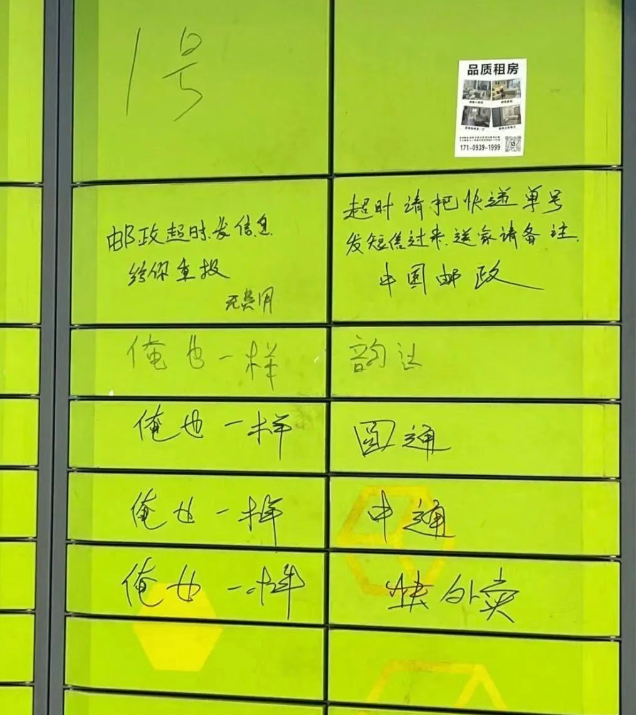 1号
品质租房
171-0939-1999
邮政超时发信息
给你重投
无费用
超时请把快递单号
发短信过来.送家请备注.
中国邮政
俺也一样
韵达
俺也一样
圆通
俺也一样
中通
俺也一样
快外卖